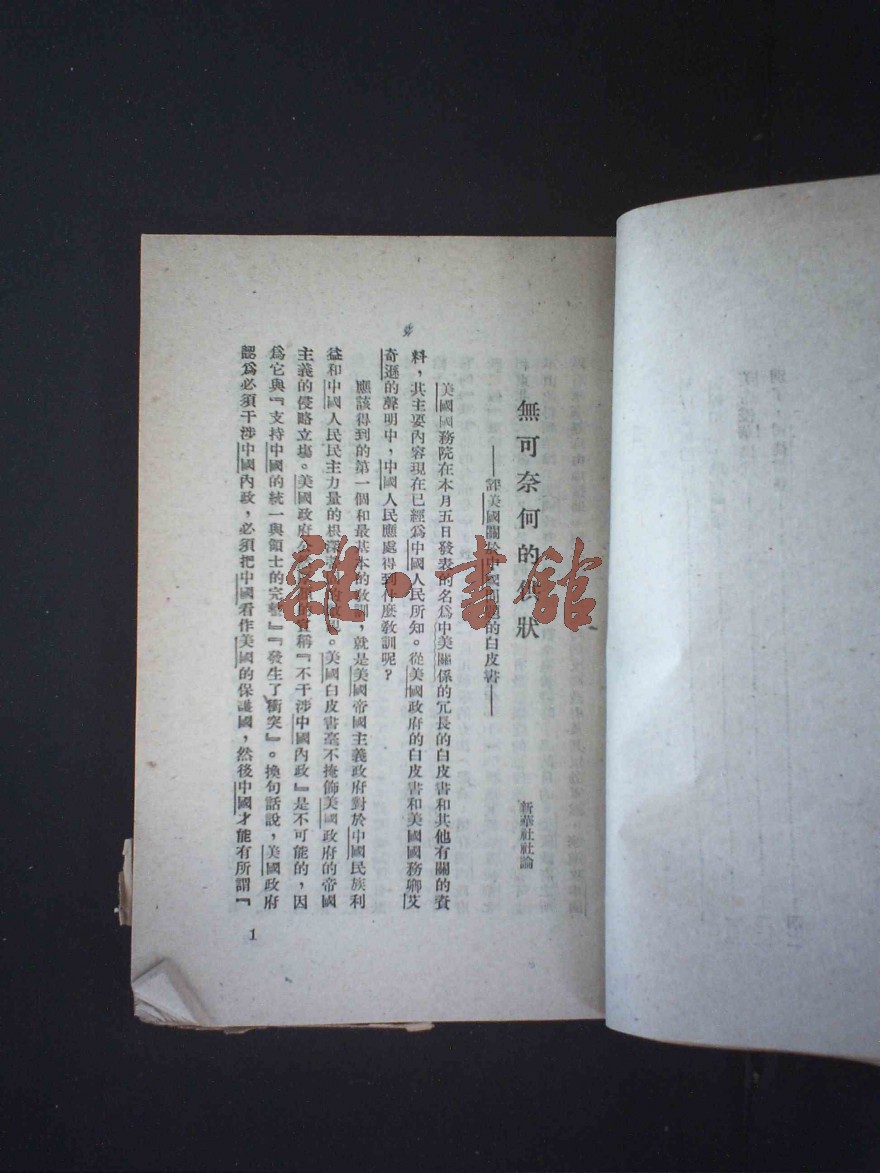 無可奈何的供狀
——評美國關於中國問題的白皮書——
新華社社論
美國國務院在本月五日發表的名爲中美關係的冗長的白皮書和其他有關的資
料，其主要內容現在已經爲中國人民所知。從美國政府的白皮書和美國國務卿艾
奇遜的聲明中，中國人民應處得到什麼敎訓呢？
應該得到的第一個和最基本的敎訓，就是美國帝國主義政府對於中國民族利
益和中國人民民主力量的根深
。美國白皮書毫不掩飾美國政府的帝國
主義的侵略立塲。美國政府公
稱『不干涉中國內政』是不可能的，因
爲它與『支持中國的統一與領土的完整』『發生了衝突』。換句話說，美國政府
認爲必須干涉中國內政，必須把中國看作美國的保護國，然後中國才能有所謂『
1
雜·書館